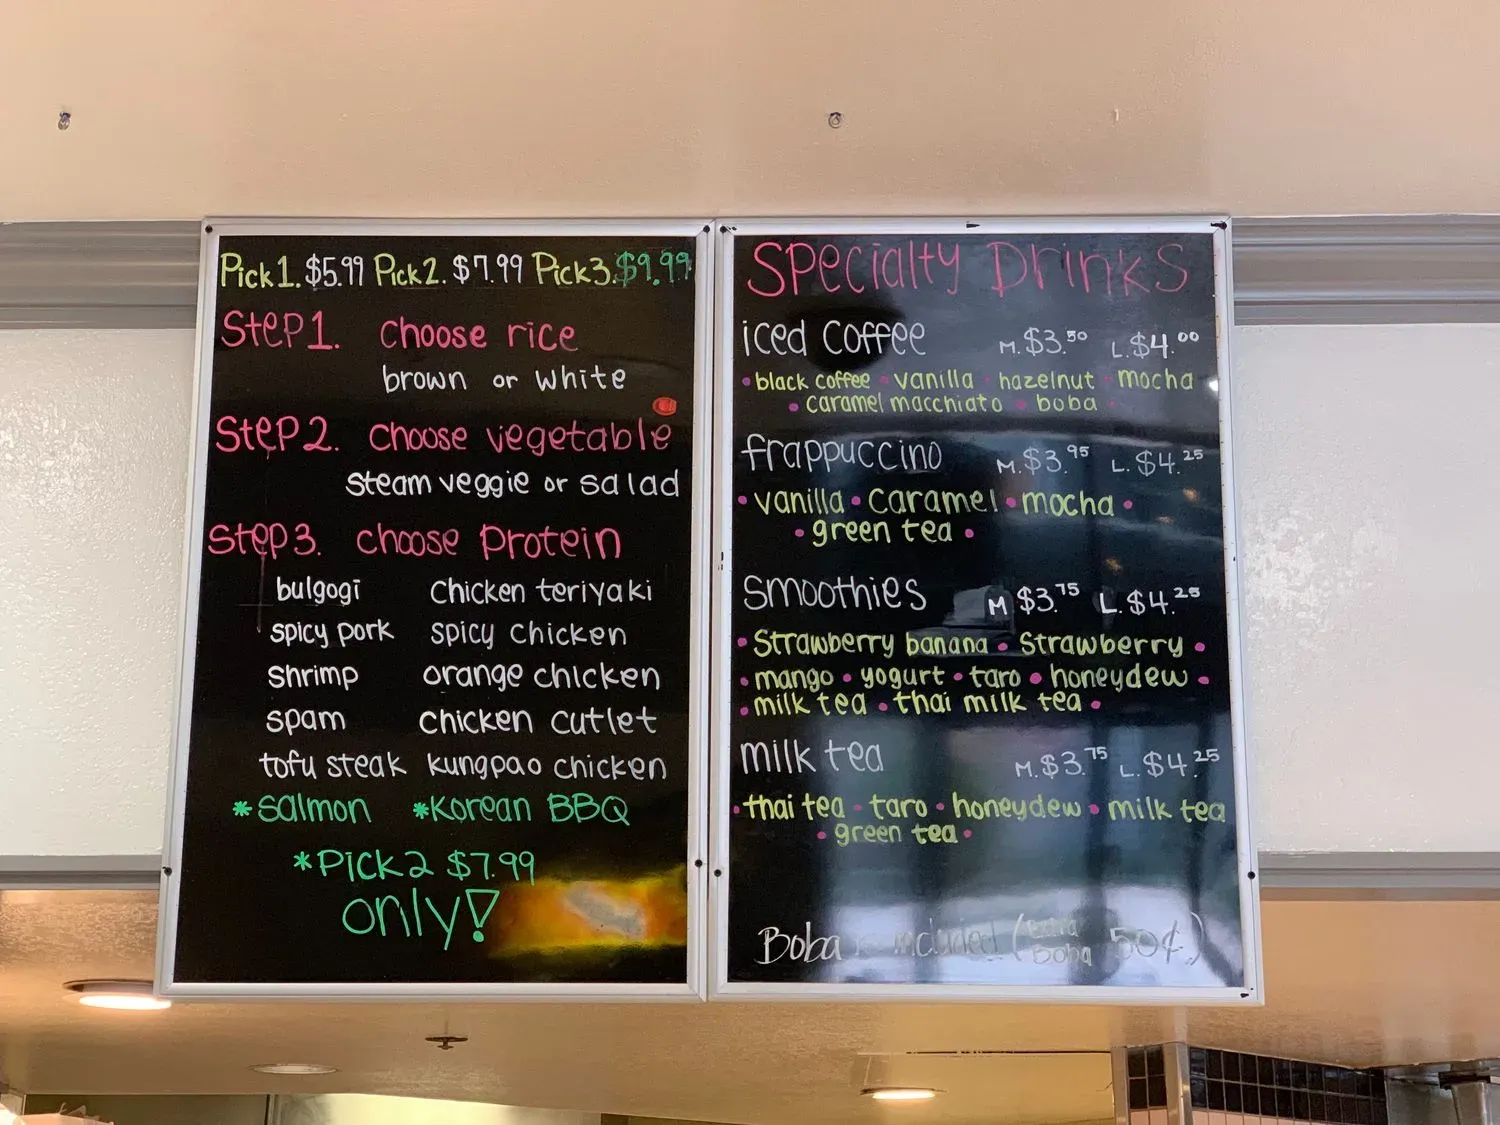 Pick1. $5.99 Pick2. $7.99 Pick3. $9.99
Step1. Choose rice
brown or white
Step2. Choose vegetable
steam veggie or salad
Step3. choose Protein
bulgogi chicken teriyaki
spicy pork spicy chicken
shrimp orange chicken
spam chicken cutlet
tofu steak kungpao chicken
*salmon *Korean BBQ
*Pick2 $7.99
only!
Specialty Drinks
iced coffee M. $3.50 L. $4.00
• black coffee • vanilla • hazelnut • mocha
• caramel macchiato • boba •
frappuccino M. $3.95 L. $4.25
• vanilla • caramel • mocha •
• green tea •
smoothies M $3.75 L. $4.25
• Strawberry banana • Strawberry •
• mango • yogurt • taro • honeydew •
• milk tea • thai milk tea •
milk tea M. $3.75 L. $4.25
• thai tea • taro • honeydew • milk tea
• green tea •
Boba is included (extra Boba 50¢)